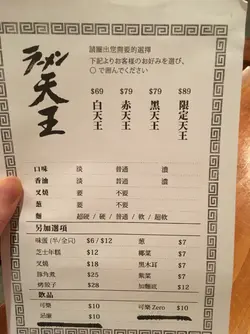 ラーメン天王
請圈出您需要的選擇
下記よりお客様のお好みを選び、
○で囲んでください
$69 $79 $79 $89
白天王 赤天王 黑天王 限定天王
口味 淡 普通 濃
香油 淡 普通 濃
叉燒 要 不要
蔥 要 不要
麵 超硬 / 硬 / 普通 / 軟 / 超軟
另加選項
味蛋 (半/全只) $6 / $12 蔥 $7
芝士年糕 $12 椰菜 $7
叉燒 $18 黑木耳 $7
豚角煮 $25 紫菜 $7
煎餃子 $28 加麵底 $12
飲品
可樂 $10 可樂 Zero $10
忌廉 $10